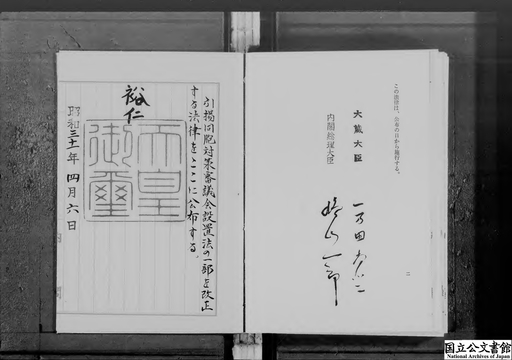 この政令は、公布の日から施行する。
大蔵大臣 一万田尚登
内閣総理大臣 鳩山一郎
二
引揚同胞対策審議会設置法の一部を改正
する法律をここに公布する。
裕仁
天皇御璽
昭和三十一年四月六日
国立公文書館
National Archives of Japan